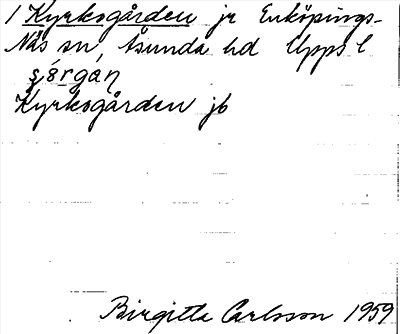 1 Kyrkogården jr Enköpings-
Näs sn, Åsunda hd Upps l
ʂǿrgáṇ
Kyrkogården jb
Birgitta Carlsson 1959